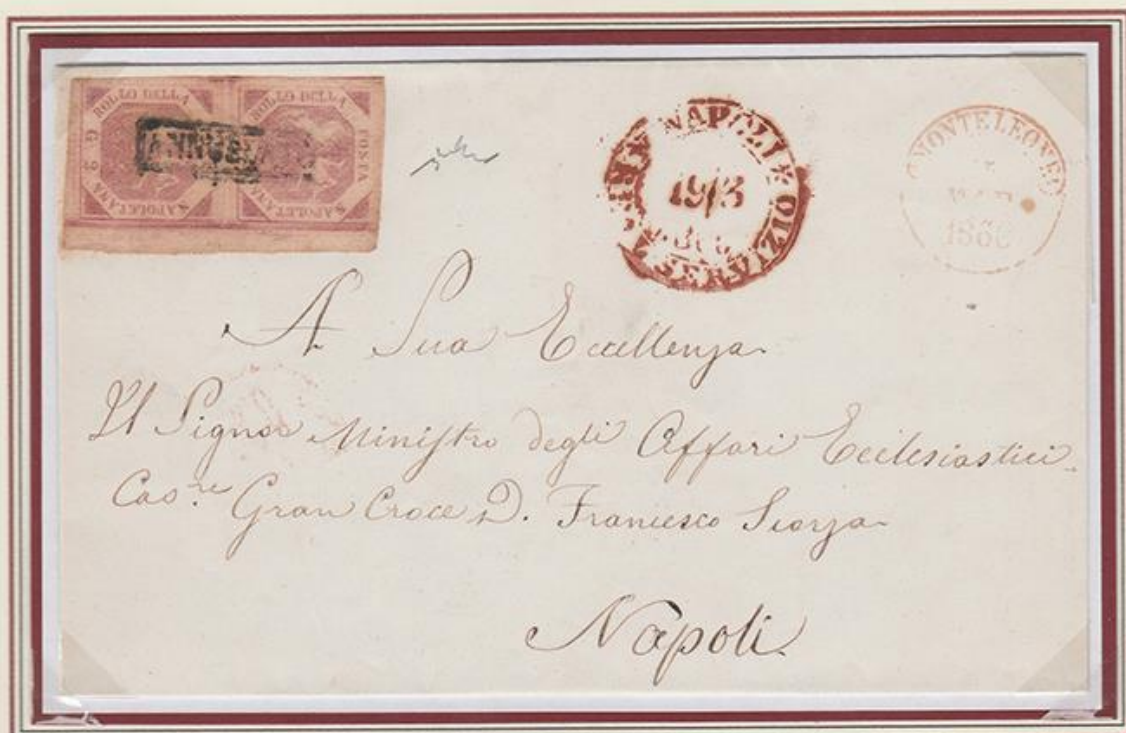 BOLLO DELLA POSTA NAPOLETANA G 2
BOLLO DELLA POSTA NAPOLETANA
ANNULLATO
NAPOLI * * SERVIZIO
19/3
MONTELEONE
1860
A Sua Eccellenza
Il Signor Ministro degli Affari Ecclesiastici
Cav.re Gran Croce D. Francesco Scorza
Napoli